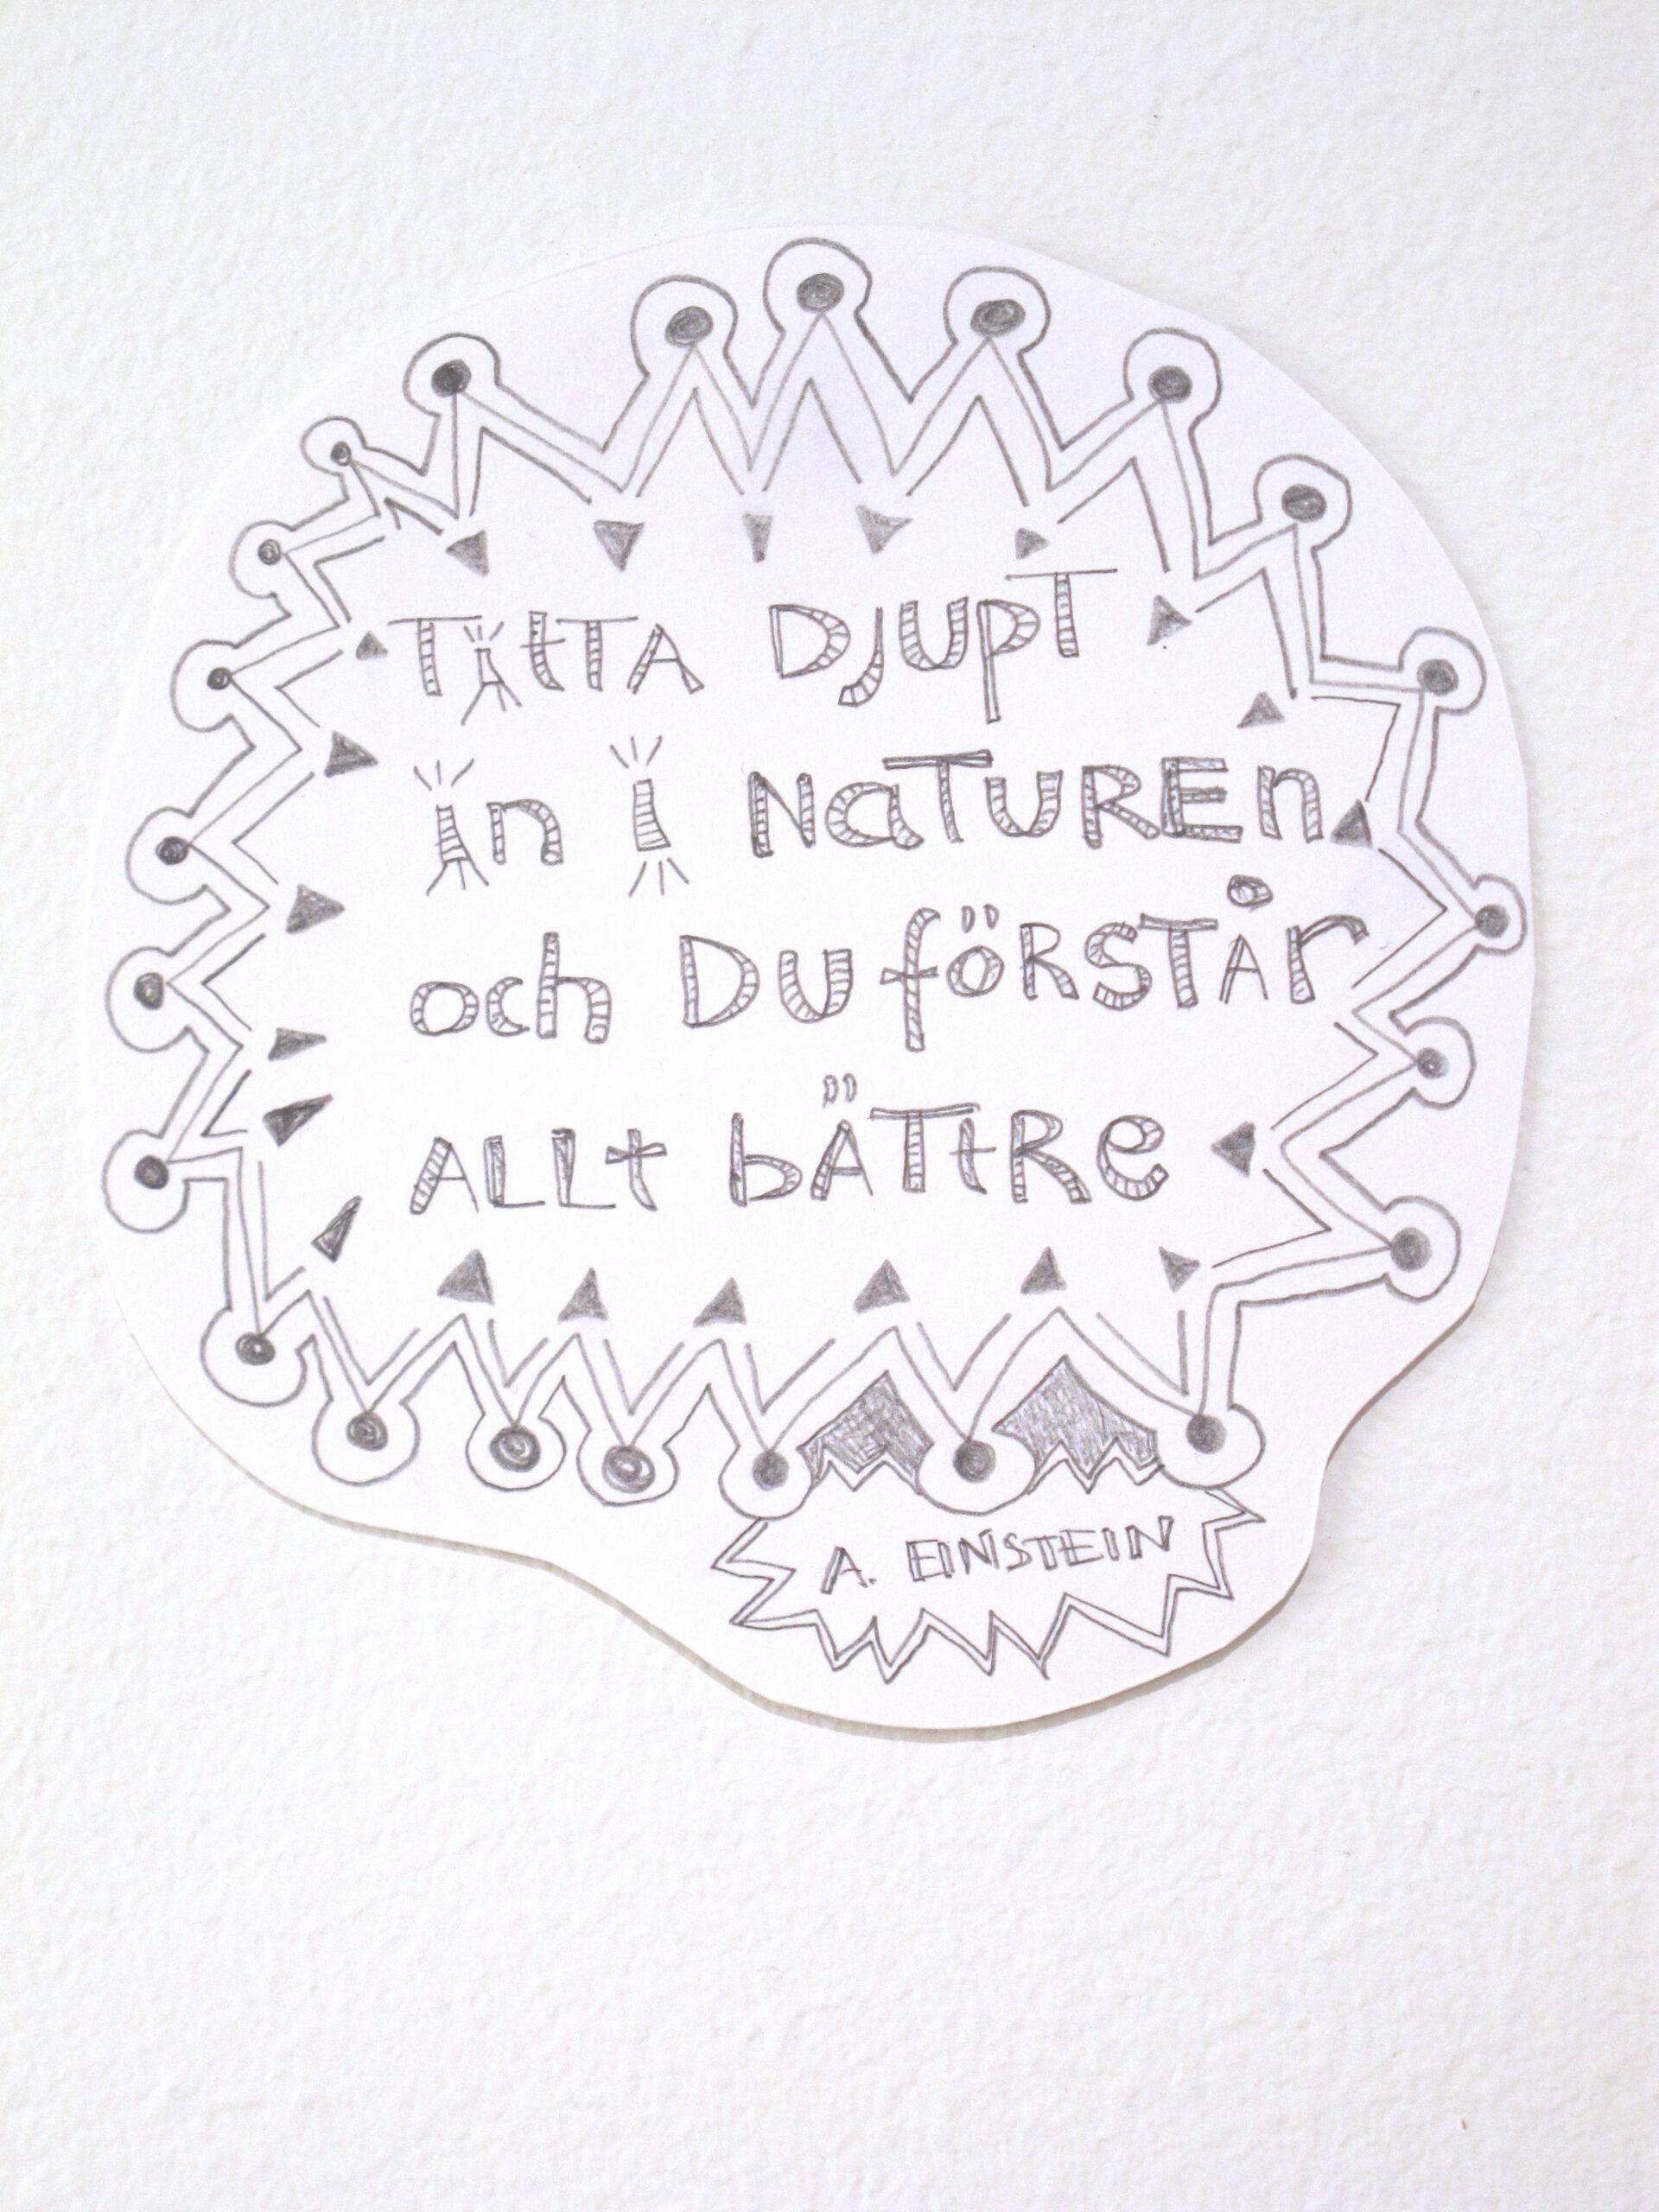 TittA DJUPT
in i NaTUREn
och DU föRSTÅr
ALLt bÄTtRe
A. EINSTEIN